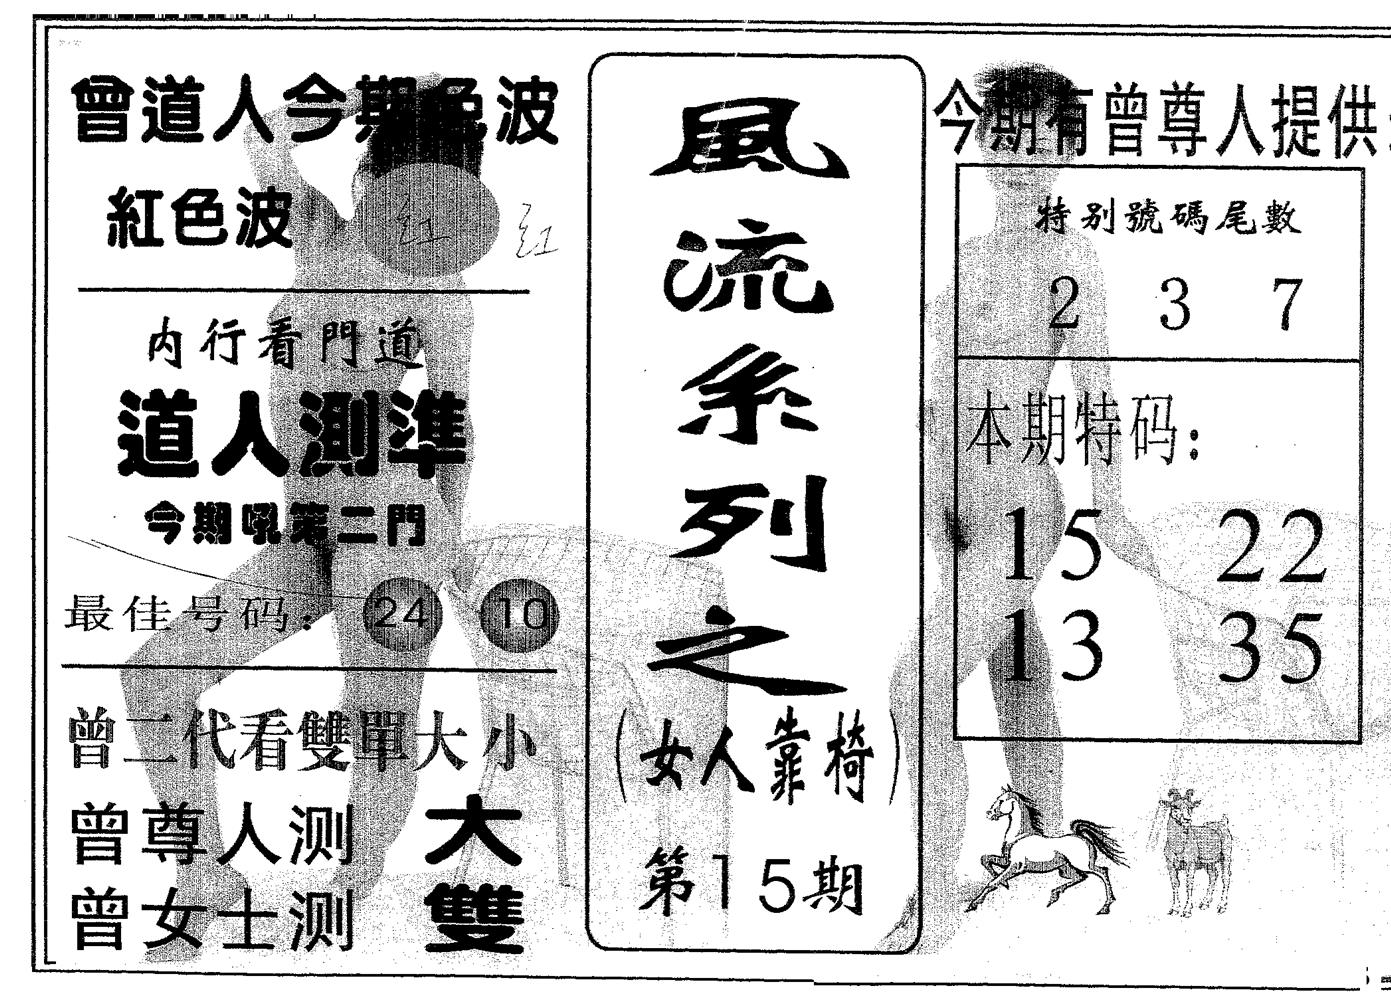 曾道人今期色波
紅色波
红 红
内行看門道
道人測準
今期吼第二門
最佳号码: 24 10
曾二代看雙單大小
曾尊人测 大
曾女士测 雙
風流系列之
(女人靠椅)
第15期
今期有曾尊人提供
特别號碼尾數
2 3 7
本期特码:
15 22
13 35